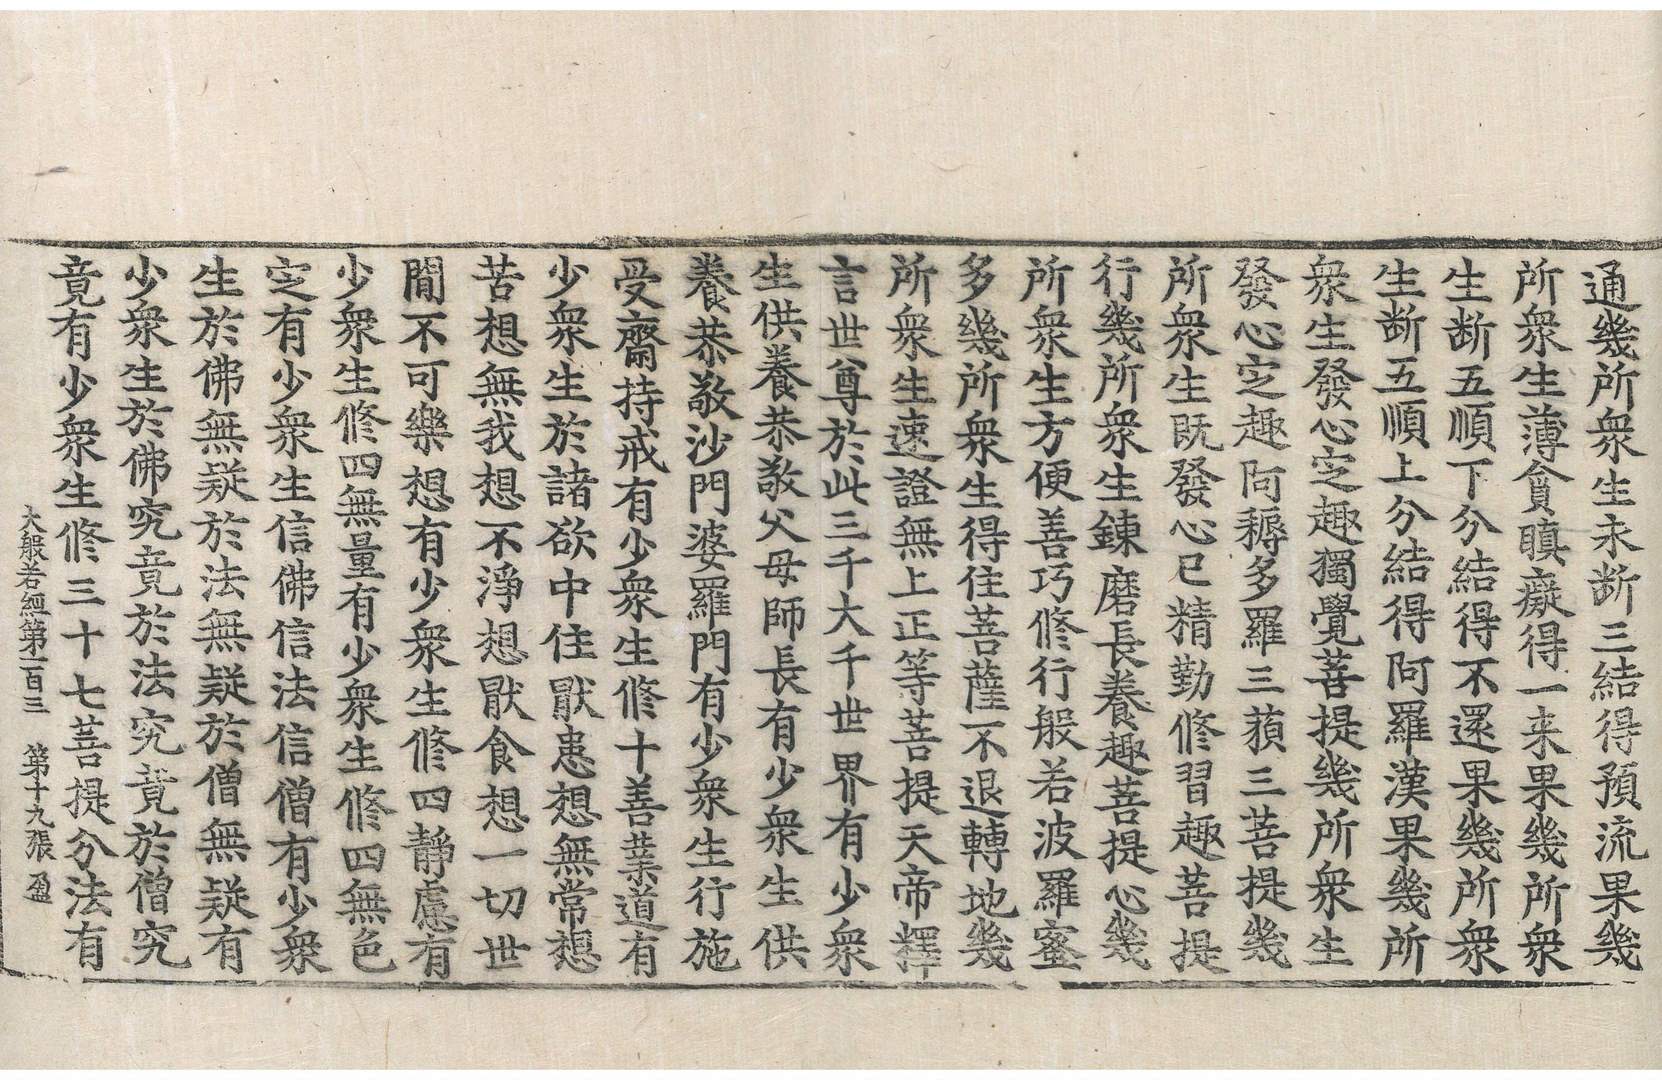 通幾所衆生永断三結得預流果幾
所衆生薄貪瞋癡得一来果幾所衆
生断五順下分結得不還果幾所衆
生断五順上分結得阿羅漢果幾所
衆生發心㝎趣獨覺菩提幾所衆生
發心㝎趣阿耨多羅三藐三菩提幾
所衆生既發心已精勤修習趣菩提
行幾所衆生錬磨長養趣菩提心幾
所衆生方便善巧修行般若波羅蜜
多幾所衆生得住菩薩不退轉地幾
所衆生速證無上正等菩提天帝釋
言世尊於此三千大千世界有少衆
生供養恭敬父母師長有少衆生供
養恭敬沙門婆羅門有少衆生行施
受齋持戒有少衆生修十善業道有
少衆生於諸欲中住猒患想無常想
苦想無我想不淨想猒食想一切世
間不可樂想有少衆生修四靜慮有
少衆生修四無量有少衆生修四無色
㝎有少衆生信佛信法信僧有少衆
生於佛無疑於法無疑於僧無疑有
少衆生於佛究竟於法究竟於僧究
竟有少衆生修三十七菩提分法有
大般若經第一百三 第十九張 盈